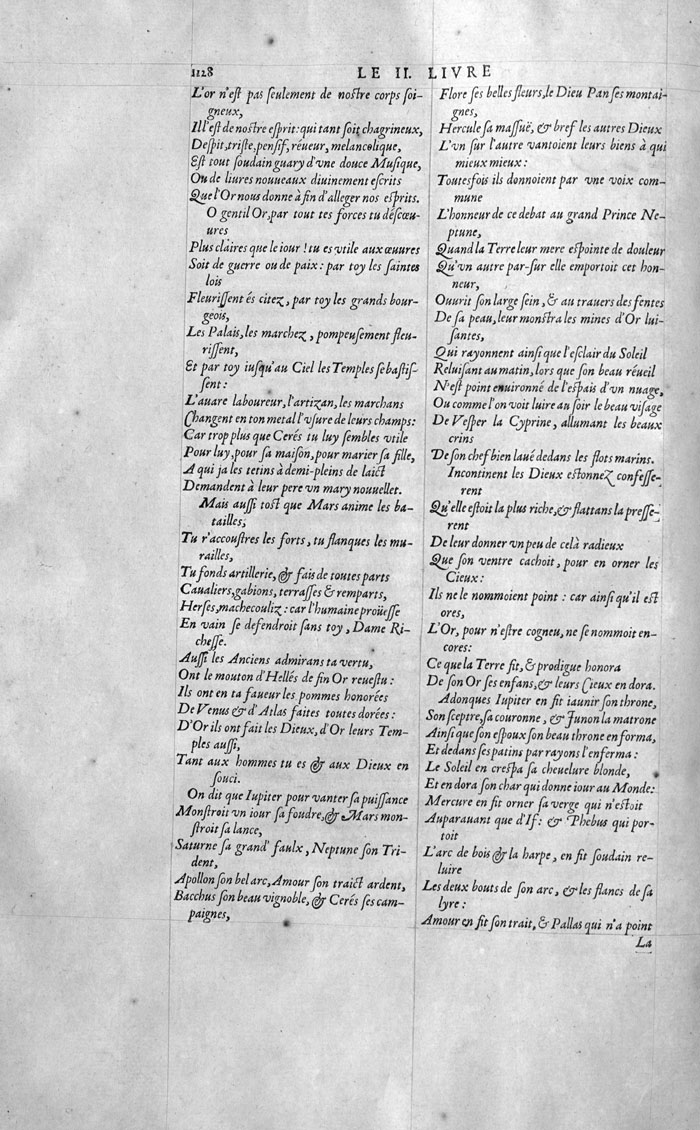 1128
LE II. LIVRE
L'or n'eſt pas ſeulement de noſtre corps ſoi-
gneux,
Ill'eſt de noſtre eſprit: qui tant ſoit chagrineux,
Deſpit, triſte, penſif, réueur, melancolique,
Eſt tout ſoudain guary d'vne douce Muſique,
Ou de liures nouueaux diuinement eſcrits
Que l'Or nous donne à fin d'alleger nos eſprits.
O gentil Or, par tout tes forces tu déſcœu-
ures
Plus claires que le iour! tu es vtile aux œuures
Soit de guerre ou de paix: par toy les ſaintes
lois
Fleuriſſent és citez, par toy les grands bour-
geois,
Les Palais, les marchez, pompeuſement fleu-
riſſent,
Et par toy iuſqu'au Ciel les Temples ſe baſtiſ-
ſent:
L'auare laboureur, l'artizan, les marchans
Changent en ton metal l'vſure de leurs champs:
Car trop plus que Cerés tu luy ſembles vtile
Pour luy, pour ſa maiſon, pour marier ſa fille,
A qui ja les tetins à demi-pleins de laict
Demandent à leur pere vn mary nouuellet.
Mais auſſi toſt que Mars anime les ba-
tailles,
Tu r'accouſtres les forts, tu flanques les mu-
railles,
Tu fonds artillerie, & fais de toutes parts
Caualiers, gabions, terraſſes & remparts,
Herſes, machecouliz: car l'humaine proüeſſe
En vain ſe defendroit ſans toy, Dame Ri-
cheſſe.
Auſſi les Anciens admirans ta vertu,
Ont le mouton d'Hellés de fin Or reueſtu:
Ils ont en ta faueur les pommes honorées
De Venus & d'Atlas faites toutes dorées:
D'Or ils ont fait les Dieux, d'Or leurs Tem-
ples auſſi,
Tant aux hommes tu es & aux Dieux en
ſouci.
On dit que Iupiter pour vanter ſa puiſſance
Monſtroit vn iour ſa foudre, & Mars mon-
ſtroit ſa lance,
Saturne ſa grand' faulx, Neptune ſon Tri-
dent,
Apollon ſon bel arc, Amour ſon traict ardent,
Bacchus ſon beau vignoble, & Cerés ſes cam-
paignes,
Flore ſes belles fleurs, le Dieu Pan ſes montai-
gnes,
Hercule ſa maſſuë, & bref les autres Dieux
L'vn ſur l'autre vantoient leurs biens à qui
mieux mieux:
Toutesfois ils donnoient par vne voix com-
mune
L'honneur de ce debat au grand Prince Ne-
ptune,
Quand la Terre leur mere eſpointe de douleur
Qu'vn autre par-ſur elle emportoit cet hon-
neur,
Ouurit ſon large ſein, & au trauers des fentes
De ſa peau, leur monſtra les mines d'Or lui-
ſantes,
Qui rayonnent ainſi que l'eſclair du Soleil
Reluiſant au matin, lors que ſon beau réueil
N'eſt point enuironné de l'eſpais d'vn nuage,
Ou comme l'on voit luire au ſoir le beau viſage
De Veſper la Cyprine, allumant les beaux
crins
De ſon chef bien laué dedans les flots marins.
Incontinent les Dieux eſtonnez confeſſe-
rent
Qu'elle eſtoit la plus riche, & flattans la preſſe-
rent
De leur donner vn peu de celà radieux
Que ſon ventre cachoit, pour en orner les
Cieux:
Ils ne le nommoient point: car ainſi qu'il eſt
ores,
L'Or, pour n'eſtre cogneu, ne ſe nommoit en-
cores:
Ce que la Terre fit, & prodigue honora
De ſon Or ſes enfans, & leurs Cieux en dora.
Adonques Iupiter en fit iaunir ſon throne,
Son ſceptre, ſa couronne, & Junon la matrone
Ainſi que ſon eſpoux ſon beau throne en forma,
Et dedans ſes patins par rayons l'enferma:
Le Soleil en creſpa ſa cheuelure blonde,
Et en dora ſon char qui donne iour au Monde:
Mercure en fit orner ſa verge qui n'eſtoit
Auparauant que d'If: & Phebus qui por-
toit
L'arc de bois & la harpe, en fit ſoudain re-
luire
Les deux bouts de ſon arc, & les flancs de ſa
lyre:
Amour en fit ſon trait, & Pallas qui n'a point
La